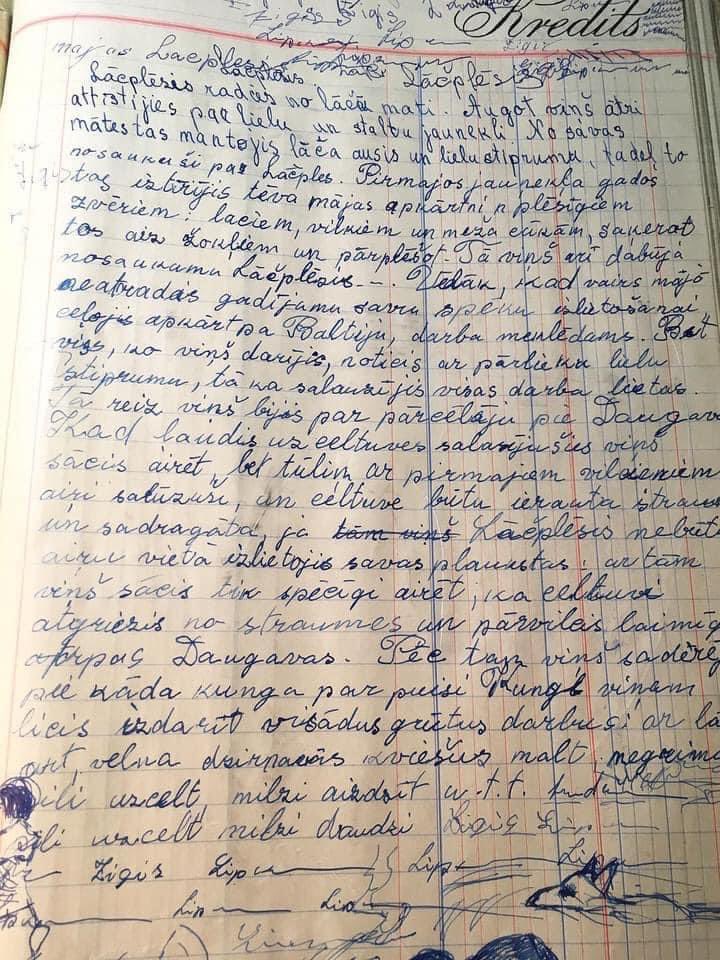 Zigis Zigis
Kredits
Lip Zigis Lip
mājas Lāčplēsis
Lāčplēsis Lāčplēsis
Lāčplēsis radies no lāča mati. Augot viņš ātri
attīstijies par lielu un staltu jaunekli No savas
mātestas mantojis lāča ausis un lielu stiprumu, tadeļ to
nosaukuši par Lāčples. Pirmajos jaunekļa gados
tas iztīrījis tēva mājas apkārtni n plēsīgiem
zvēriem: lačiem, vilkiem un meža cūkām, saķerot
tos aiz žokļiem un pārplēšot. Tā viņš arī dabūja
nosaukumu Lāčplēsis - - . Vēlāk, kad vairs mājā
neatradās gadījumu savu spēku izlietošanai
ceļojis apkārt pa Baltiju, darba meklēdams. Bet
viss, ko viņš darījis, noticis ar pārlieku lielu
stiprumu, tā ka salauzījis visas darba lietas.
Tā reiz viņš bijis par pārcēlāju pie Daugava
Kad ļaudis uz celtuves salasijušies viņš
sācis airēt, bet tūlim ar pirmajiem vilcieniem
airi salūzuši, un celtuve būtu ierauta strau
un sadragāta, ja tam viņš Lāčplēsis nebūtu
airu vietā izlietojis savas plaukstas: ar tām
viņš sācis tik spēcīgi airēt, ka celtuvi
atgriezis no straumes un pārvilcis laimīg
otrpus Daugavas. Pēc tam viņš saderē
pie kāda kunga par puisi Kungs viņam
licis izdarīt visādus grūtus darbus: ar lā
art, velna dzirnavās kviešus malt, negrima
pili uzcelt, milzi aizdzīt u.t.t.
pili uzcelt milzi daudzi Zigis Lip
Zigis Lip Lip Lip
Lip Lip